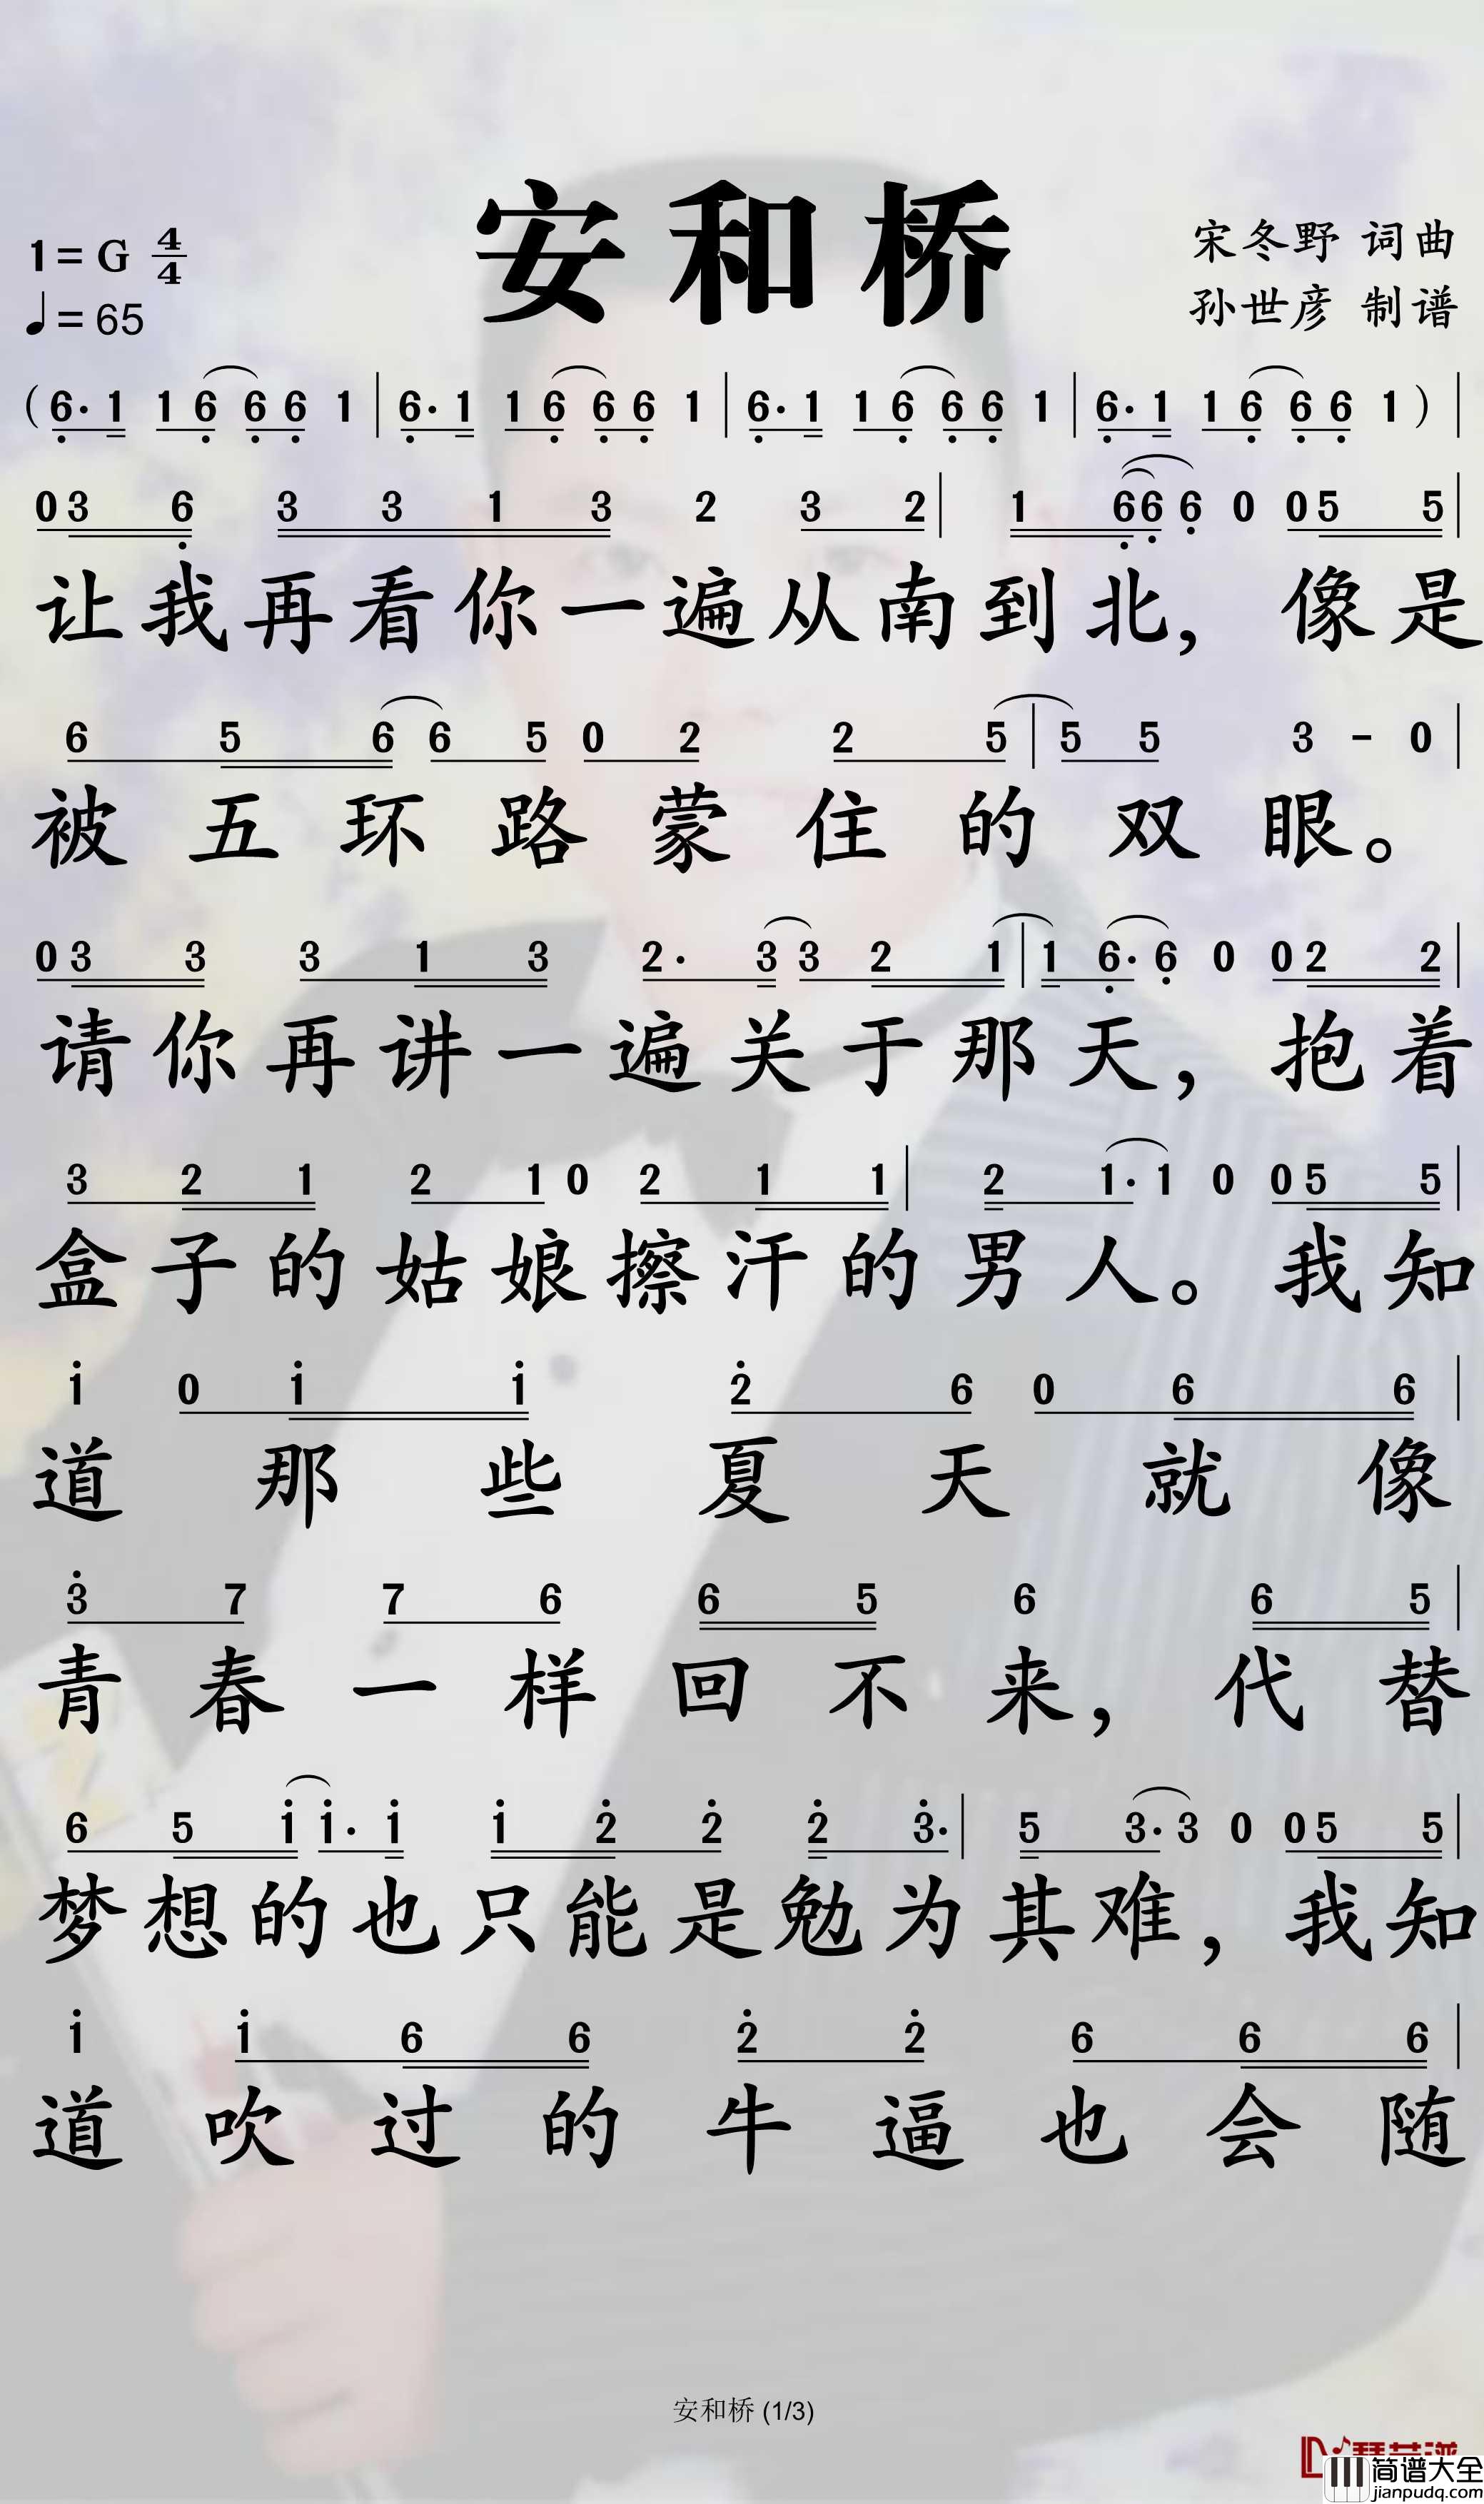 安和桥
1=G 4/4
♩=65
宋冬野 词曲
孙世彦 制谱
(6· 1 1 6 6 6 1 | 6· 1 1 6 6 6 1 | 6· 1 1 6 6 6 1 | 6· 1 1 6 6 6 1 ) |
0 3 6 3 3 1 3 2 3 2 | 1 6 6 6 0 0 5 5 |
让我再看你一遍从南到北,像是
6 5 6 6 5 0 2 2 5 | 5 5 3 - 0 |
被五环路蒙住的双眼。
0 3 3 3 1 3 2· 3 3 2 1 | 1 6· 6 0 0 2 2 |
请你再讲一遍关于那天,抱着
3 2 1 2 1 0 2 1 1 | 2 1· 1 0 0 5 5 |
盒子的姑娘擦汗的男人。我知
1 0 1 1 2 6 0 6 6 |
道那些夏天就像
3 7 7 6 6 5 6 6 5 |
青春一样回不来,代替
6 5 1 1· 1 1 2 2 2 3· | 5 3· 3 0 0 5 5 |
梦想的也只能是勉为其难,我知
1 1 6 6 2 2 6 6 6 |
道吹过的牛逼也会随
安和桥 (1/3)
简谱大全
jianpudq.com